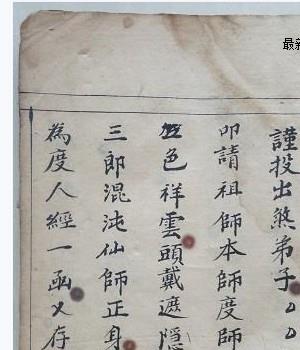 最新
謹投出煞弟子
叩請祖師本師度師
五色祥雲頭戴遮隱
三郎混沌仙師正身
為度人經一函又存